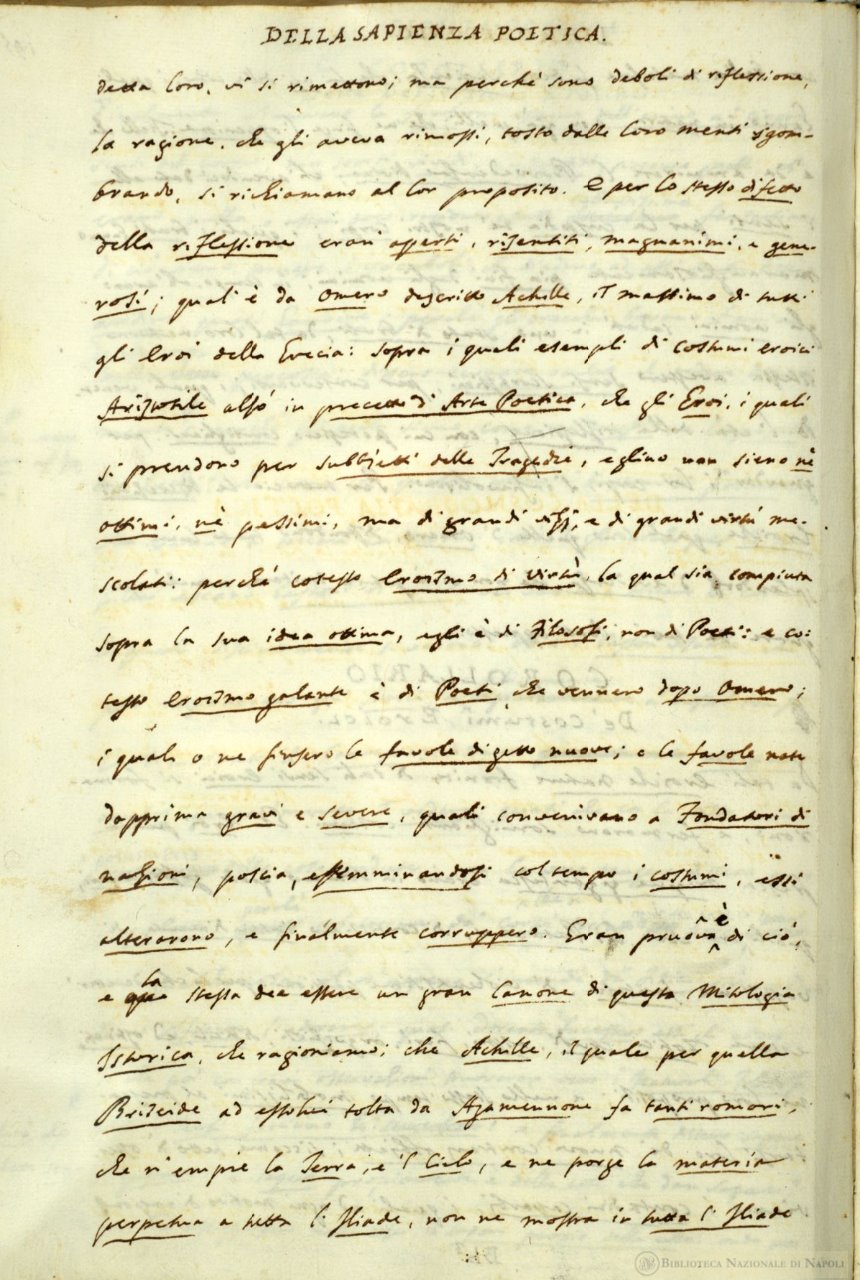 DELLA SAPIENZA POETICA.
detta loro, vi si rimettono; ma perchè sono deboli di riflessione,
la ragione, che gli aveva rimossi, tosto dalle loro menti sgom-
brando, si richiamano al lor proposito. E per lo stesso difetto
della riflessione eran apperti, risentiti, magnanimi, e gene-
rosi; qual'è da Omero descritto Achille, il massimo di tutti
gli Eroi della Grecia: sopra i quali esempli di costumi eroici
Aristotile alzò in precetto di Arte Poetica, che gli Eroi, i quali
si prendono per subbietti delle Tragedie, eglino non sieno nè
ottimi, nè pessimi, ma di grandi vizj, e di grandi virtù me-
scolati: perchè cotesto Eroismo di virtù, la qual sia compiuta
sopra la sua idea ottima, egli è di Filosofi, non di Poeti: e co-
testo Eroismo galante è di Poeti, che vennero dopo Omero;
i quali o ne finsero le favole di getto nuove; o le favole nate
dapprima gravi e severe, quali convenivano a Fondatori di
nazioni, poscia, effemminandosi col tempo i costumi, essi
alterarono, e finalmente corruppero. Gran pruova è di ciò,
e la stessa dee essere un gran Canone di questa Mitologia
Istorica, che ragioniamo; che Achille, il quale per quella
Briseide ad essolui tolta da Agamennone fa tanti romori,
che n'empie la Terra, e 'l Cielo, e ne porge la materia
perpetua a tutta l'Iliade, non ne mostra in tutta l'Iliade
BIBLIOTECA NAZIONALE DI NAPOLI